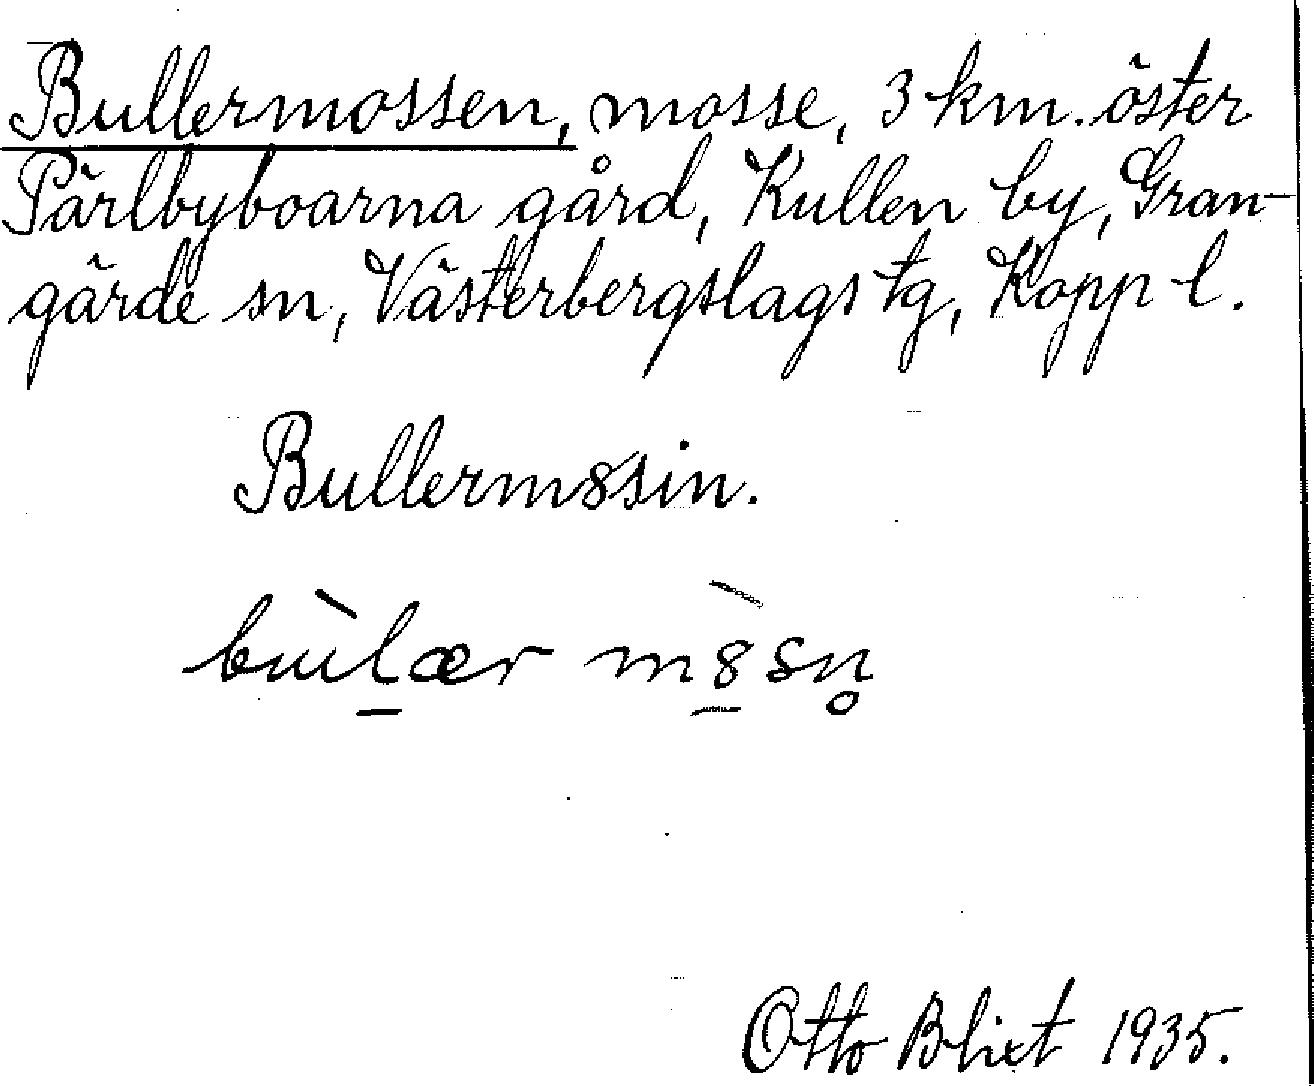 Bullermossen, mosse, 3 km. öster
Pärlbyboarna gård, Kullen by, Gran-
gärde sn, Västerbergslags tg, Kopp l.
Bullerm8sin.
bùlær m8̀sn̥
Otto Blixt 1935.